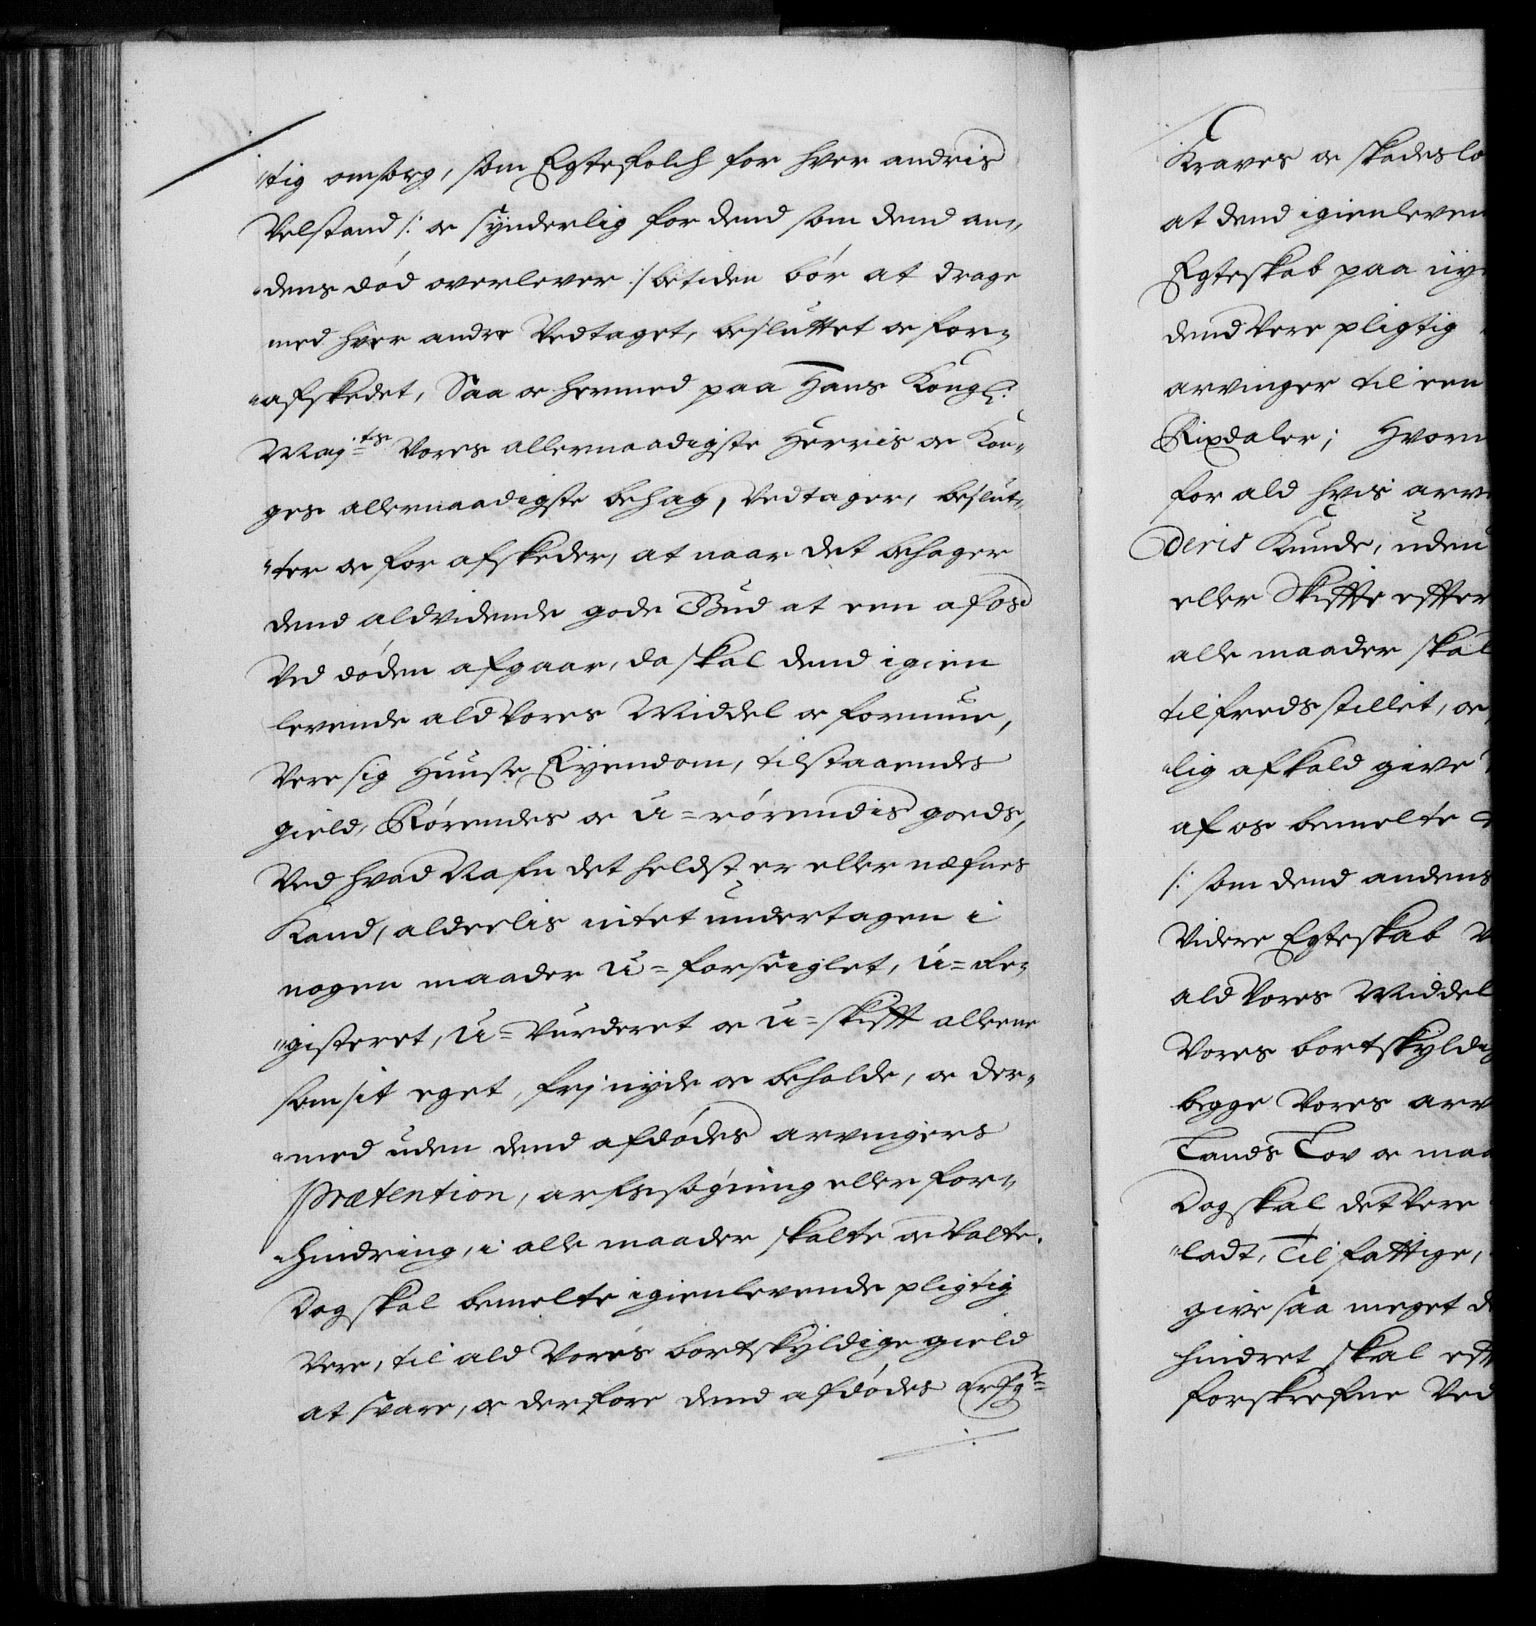 "tig omsorg, som Egtefolch for hver andris
Velstand /: oc synderlig for dend som dend an"
"dens död overlever :/ betiden bör at drage
med hver andre Vedtaget, besluttet oc for=
"afskedet, Saa oc hermed paa Hans Kongl:
Maj:ts Vores allernaadigste Herris oc Kon"
ges allernaadigste behag, Vedtager, beslut"
"ter oc for afskeder, at naar det behager
dend aldvidende gode Gud at een af os
Ved döden afgaar, da skal dend igien
levende ald Vores Middel oc formue,
Vere sig Huuse, Eyendom, tilstaaendes
gield, Rörendes oc U=rörendis goeds,
Ved hvad Nafn det heldst er eller næfnes
Kand, alderlis intet undertagen i
nogen maader U=forseiglet, U=Re=
"gisteret, U=Vurderet oc U=skifft alleene
som sit eget, frj nyde oc beholde, oc der"
"med uden dend afdödes arvingers
Prætention, arfsögning eller for"
hindring, i alle maader skalte oc Valte.
Dog skal bemelte igienlevende pligtig
Vere, til ald Vores bortskyldige gield
at svare, oc derfore dend afdödes arfg:r
Kraves oc skadeslo
at dend igienleven
Egteskab paa nye
dend Vere pligtig
arvinger til een
Rixdaler; Hvorn
for ald hvis arv
deris Kunde, uden
eller Skiffte effter
alle maader skal
tilfredsstillet, oc
lig afkald give
af os bemelte
/: som dend andens
Videre Egteskab
ald Vores Middel
Vores bortskyldig
begge Vores arv
Lands Lov oc maa
Dog skal det Vere
"ladt, Til fattige,
give saa meget d
hindret skal eft
forskrefne Ved